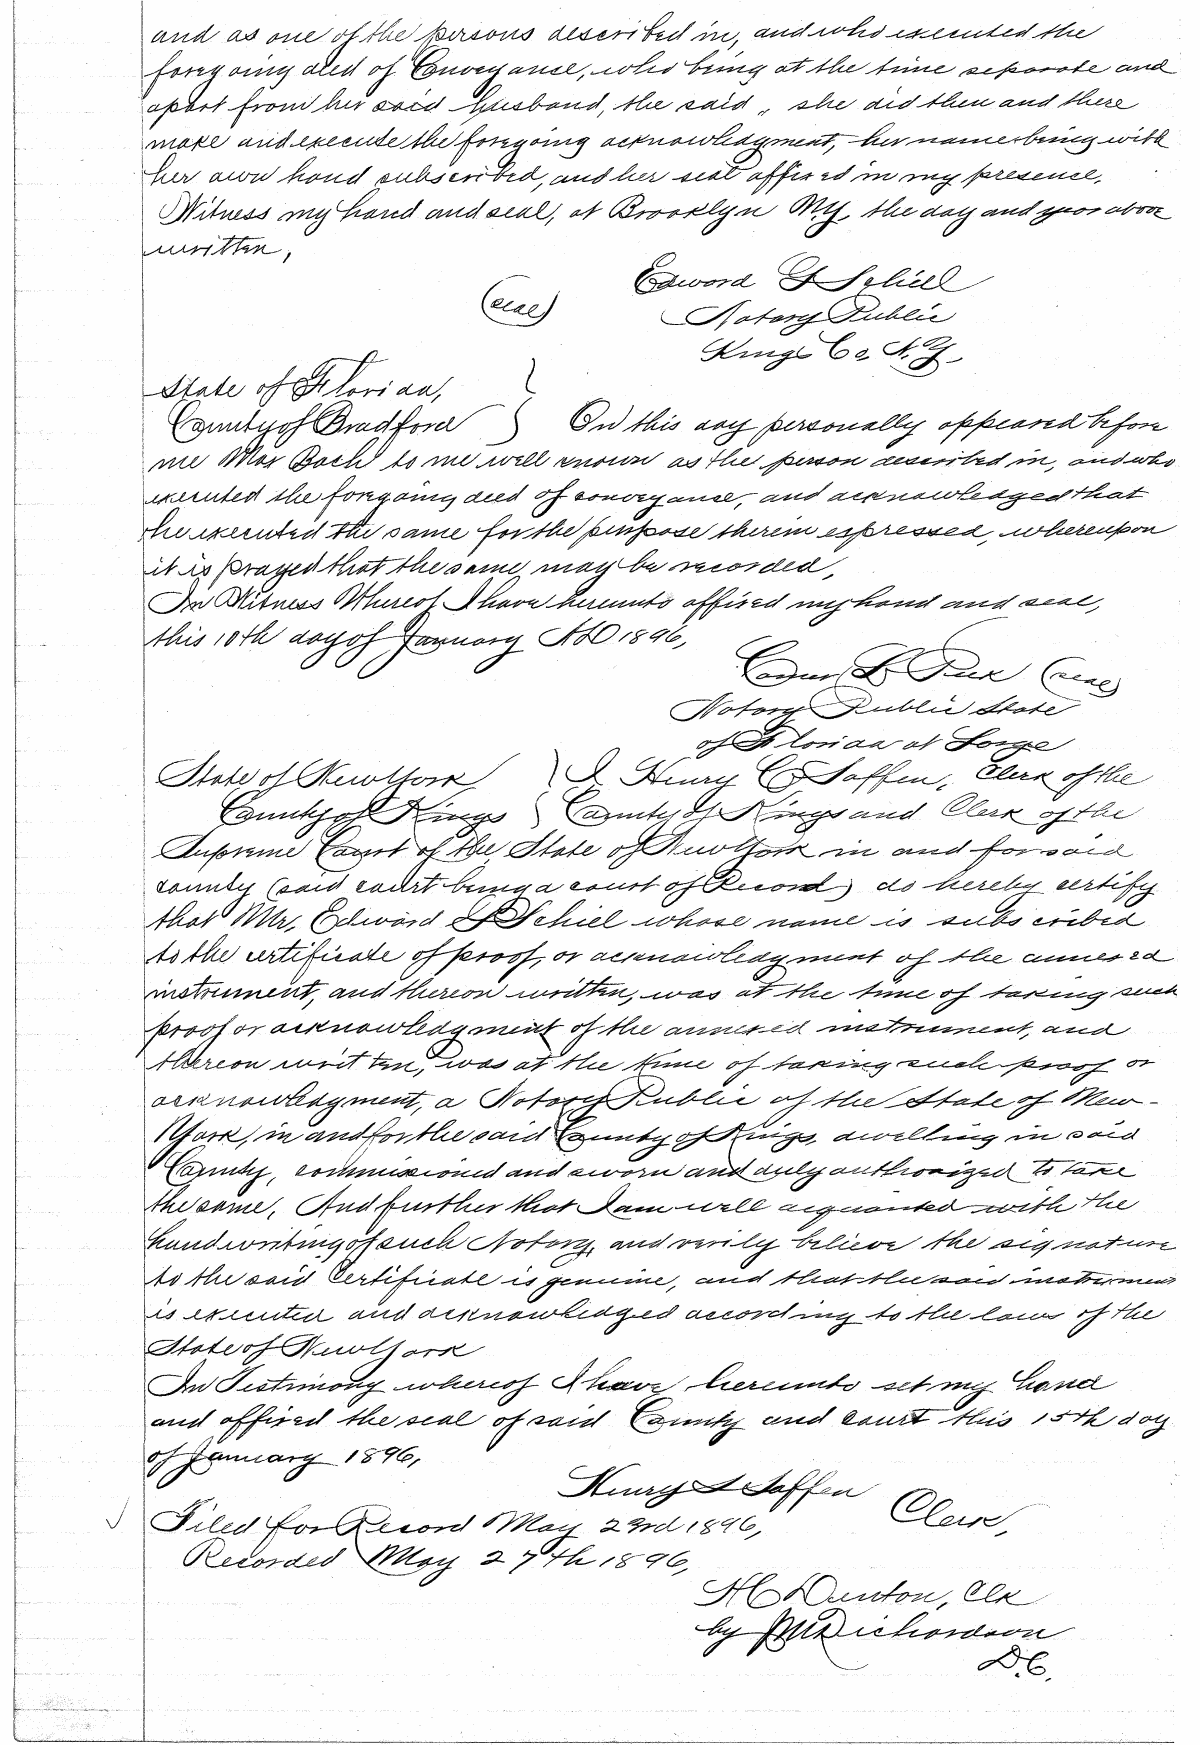 and as one of the persons described in, and who executed the
foregoing deed of Conveyance, who being at the time separate and
apart from her said husband, the said, she did then and there
make and execute the foregoing acknowledgment, her name being with
her own hand subscribed, and her seal affixed in my presence,
Witness my hand and seal, at Brooklyn N.Y. the day and year above
written,
Edward Schiel
(seal)
Notary Public
Kings Co N.Y.
State of Florida,
County of Bradford } On this day personally appeared before
me Max Bach to me well known as the person described in, and who
executed the foregoing deed of conveyance, and acknowledged that
he executed the same for the purpose therein expressed, whereupon
it is prayed that the same may be recorded,
In Witness Whereof I have hereunto affixed my hand and seal,
this 10th day of January AD 1896,
(seal)
Notary Public State
of Florida at Large
State of New York } I Henry C Saffen, Clerk of the
County of Kings } County of Kings and Clerk of the
Supreme Court of the State of New York in and for said
county (said court being a court of Record) do hereby certify
that Mr. Edward Schiel whose name is subscribed
to the certificate of proof, or acknowledgment of the annexed
instrument, and thereon written, was at the time of taking such
proof or acknowledgment of the annexed instrument, and
thereon written, was at the time of taking such proof or
acknowledgment, a Notary Public of the State of New-
York, in and for the said County of Kings, dwelling in said
County, commissioned and sworn and duly authorized to take
the same. And further that I am well acquanted with the
handwriting of such Notary, and verily believe the signature
to the said Certificate is genuine, and that the said instrument
is executed and acknowledged according to the laws of the
State of New York
In Testimony whereof I have hereunto set my hand
and affixed the seal of said County and court this 15th day
of January 1896,
Henry Saffen
Clerk,
Filed for Record May 23rd 1896,
Recorded May 27th 1896,
HC Denton, Clk
by Richardson
D.C.